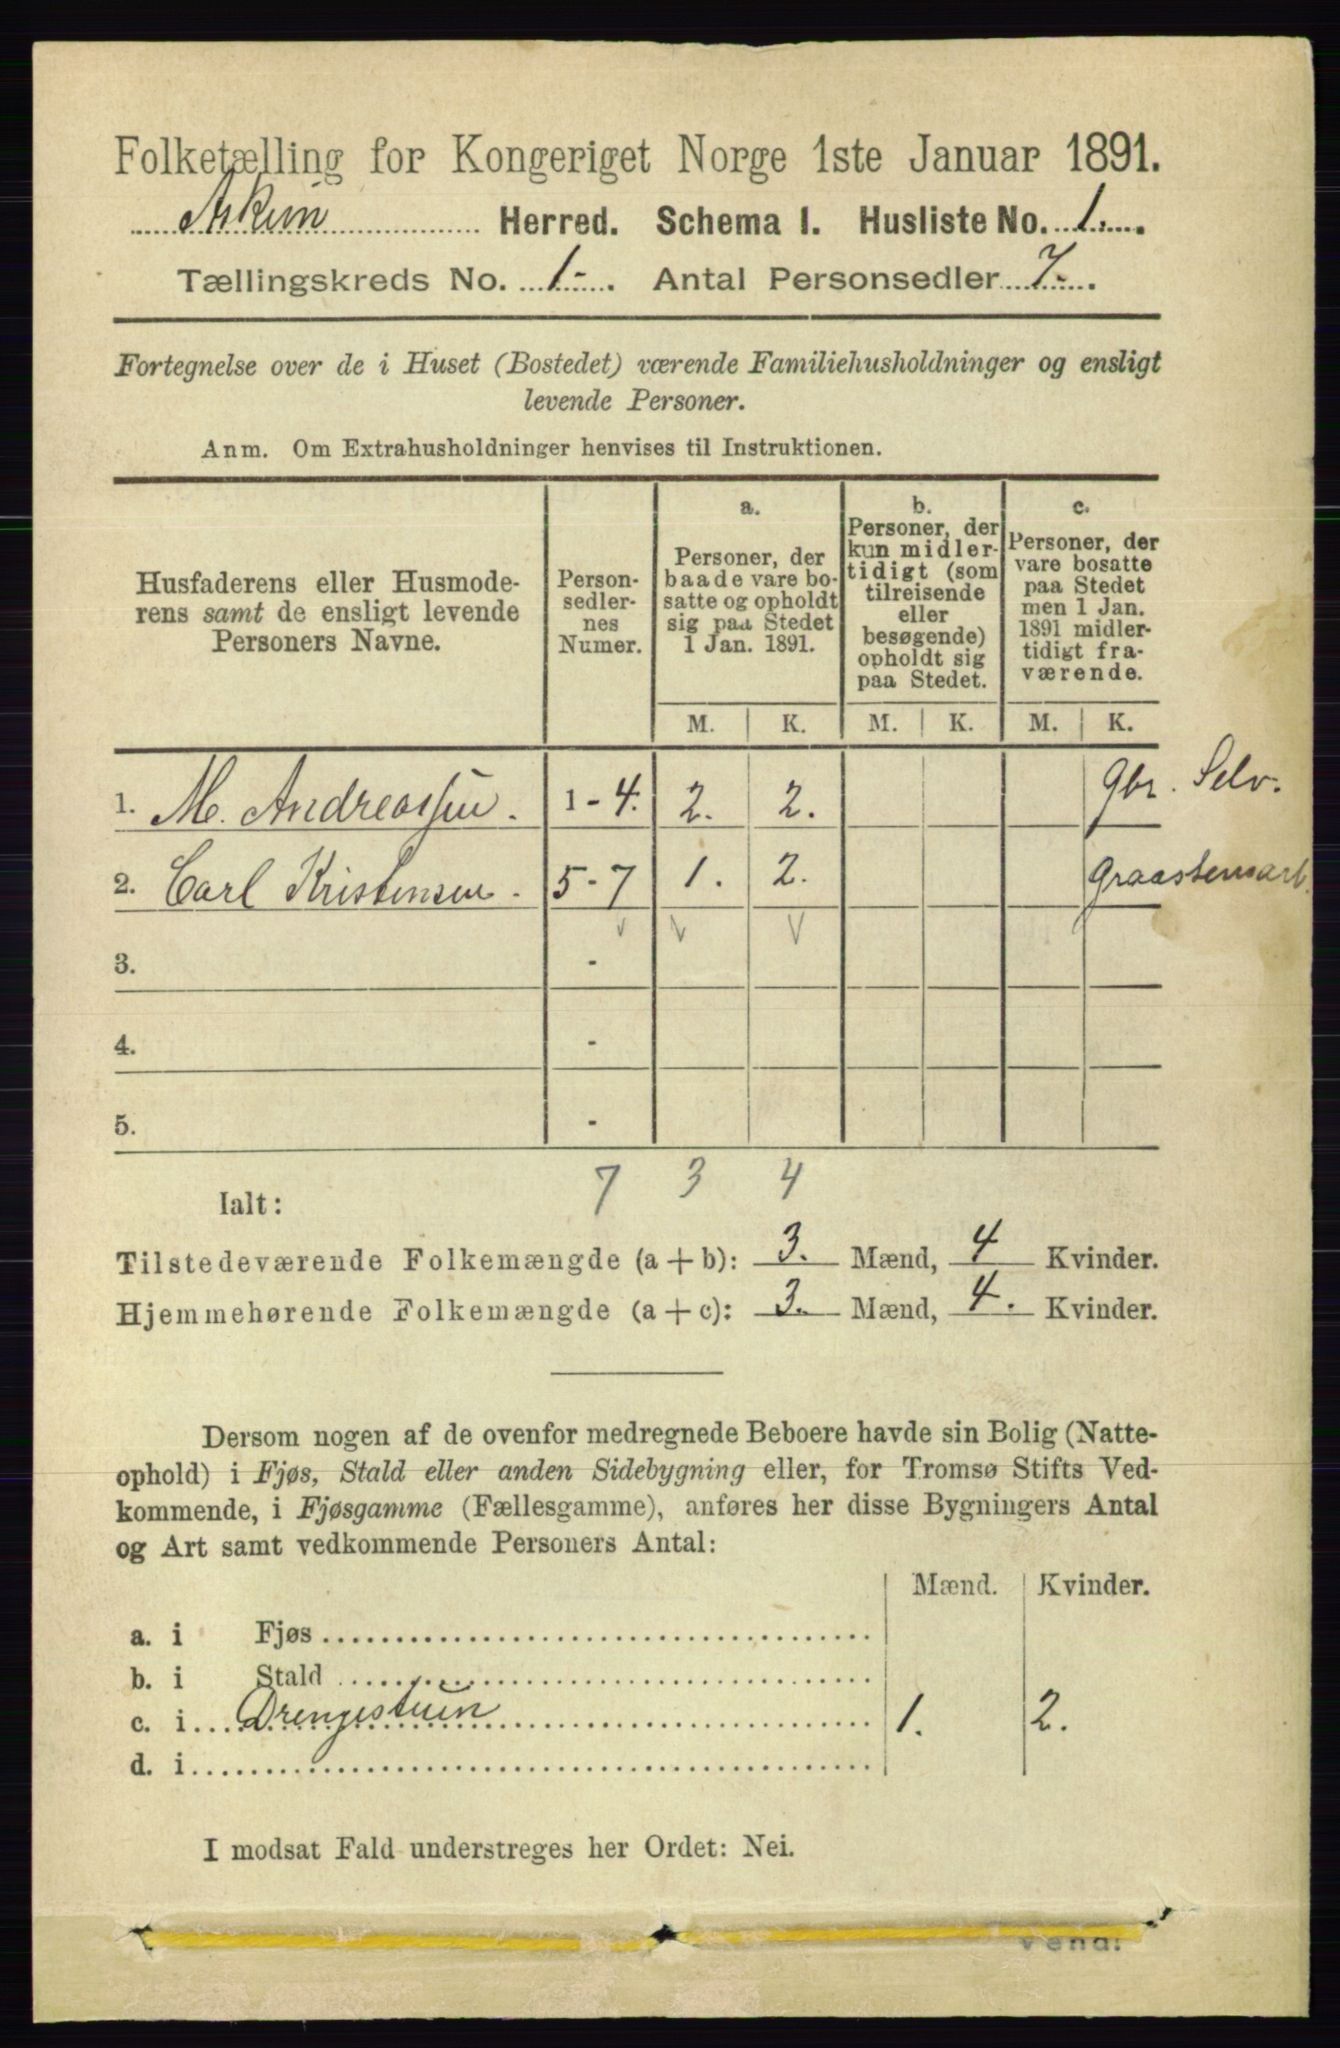 Folketælling for Kongeriget Norge 1ste Januar 1891.
Askim Herred. Schema I. Husliste No. 1.
Tællingskreds No. 1-. Antal Personsedler 7-.
Fortegnelse over de i Huset (Bostedet) værende Familiehusholdninger og ensligt
levende Personer.
Anm. Om Extrahusholdninger henvises til Instruktionen.
Husfaderens eller Husmode-
rens samt de ensligt levende
Personers Navne.
Person-
sedler-
nes
Numer.
a.
Personer, der
baade vare bo-
satte og opholdt
sig paa Stedet
1 Jan. 1891.
b.
Personer, der
kun midler-
tidigt (som
tilreisende
eller
besøgende)
opholdt sig
paa Stedet.
c.
Personer, der
vare bosatte
paa Stedet
men 1 Jan.
1891 midler-
tidigt fra-
værende.
M. K. M. K. M. K.
1. M. Andreassen. 1-4. 2. 2. gbr. Selv.
2. Carl Kristensen. 5-7 1. 2. Graastensarb.
3. -
4. -
5. -
Ialt: 7 3 4
Tilstedeværende Folkemængde (a + b): 3. Mænd, 4 Kvinder.
Hjemmehørende Folkemængde (a + c): 3. Mænd, 4. Kvinder.
Dersom nogen af de ovenfor medregnede Beboere havde sin Bolig (Natte-
ophold) i Fjøs, Stald eller anden Sidebygning eller, for Tromsø Stifts Ved-
kommende, i Fjøsgamme (Fællesgamme), anføres her disse Bygningers Antal
og Art samt vedkommende Personers Antal:
Mænd. Kvinder.
a. i Fjøs
b. i Stald
c. i Drengestuen 1. 2.
d. i
I modsat Fald understreges her Ordet: Nei.
Vend!